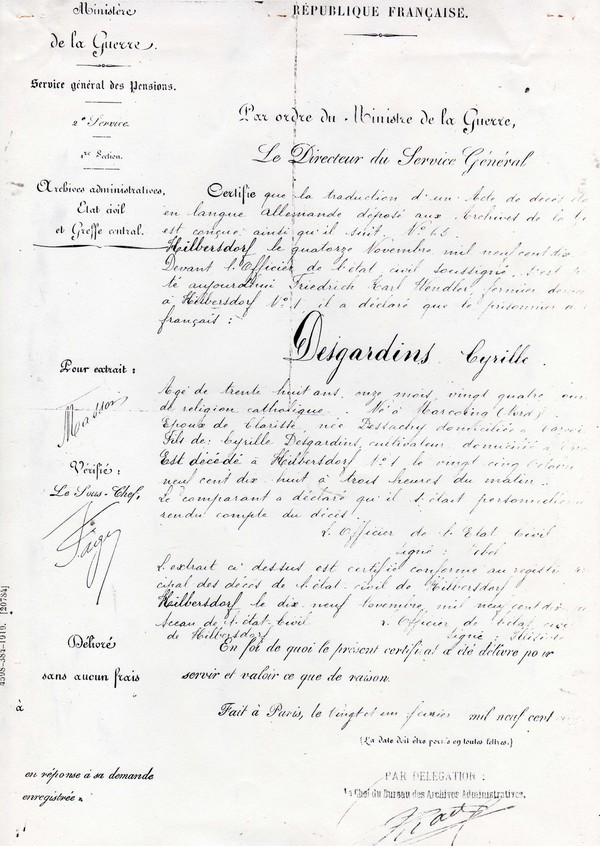 Ministère
de la Guerre.
Service général des Pensions.
2e Service.
1re Section.
Archives administratives,
Etat civil
et Greffe central.
RÉPUBLIQUE FRANÇAISE.
Par ordre du Ministre de la Guerre,
Le Directeur du Service Général
Certifie que la traduction d'un Acte de décès
en langue Allemande déposé aux Archives de la
est conçue ainsi qu'il suit. N° 65
Hilbersdorf, le quatorze Novembre mil neuf cent dix
Devant l'Officier de l'état civil soussigné s'est
té aujourd'hui Friedrich Karl Hendler, fermier
à Hilbersdorf N° 1 il a déclaré que le prisonnier
français :
Desgardins Cyrille.
Agé de trente huit ans, onze mois, vingt quatre
de religion catholique. Né à Marcoing (Nord).
Epoux de Clarisse, née domiciliée à
Fils de Cyrille Desgardins, cultivateur, domicilié à
Est décédé à Hilbersdorf N° 1, le vingt cinq Octobre
neuf cent dix huit à trois heures du matin.
Le comparant a déclaré qu'il s'était personnellement
rendu compte du décès.
L'Officier de l'Etat Civil
Signé :
L'extrait ci dessus est certifié conforme au registre
cipal des décès de l'état-civil de Hilbersdorf
Hilbersdorf le dix neuf Novembre mil neuf cent dix
Sceau de l'état-civil L'Officier de l'Etat civil
de Hilbersdorf Signé :
En foi de quoi le présent certificat a été délivré pour
servir et valoir ce que de raison.
Fait à Paris, le vingt et un février mil neuf cent
(La date doit être portée en toutes lettres.)
PAR DELEGATION :
Le Chef du Bureau des Archives Administratives.
Pour extrait :
Masson
Vérifié :
Le Sous-Chef,
Délivré
sans aucun frais
à
en réponse à sa demande
enregistrée n°
4598-384-1919. [20784]